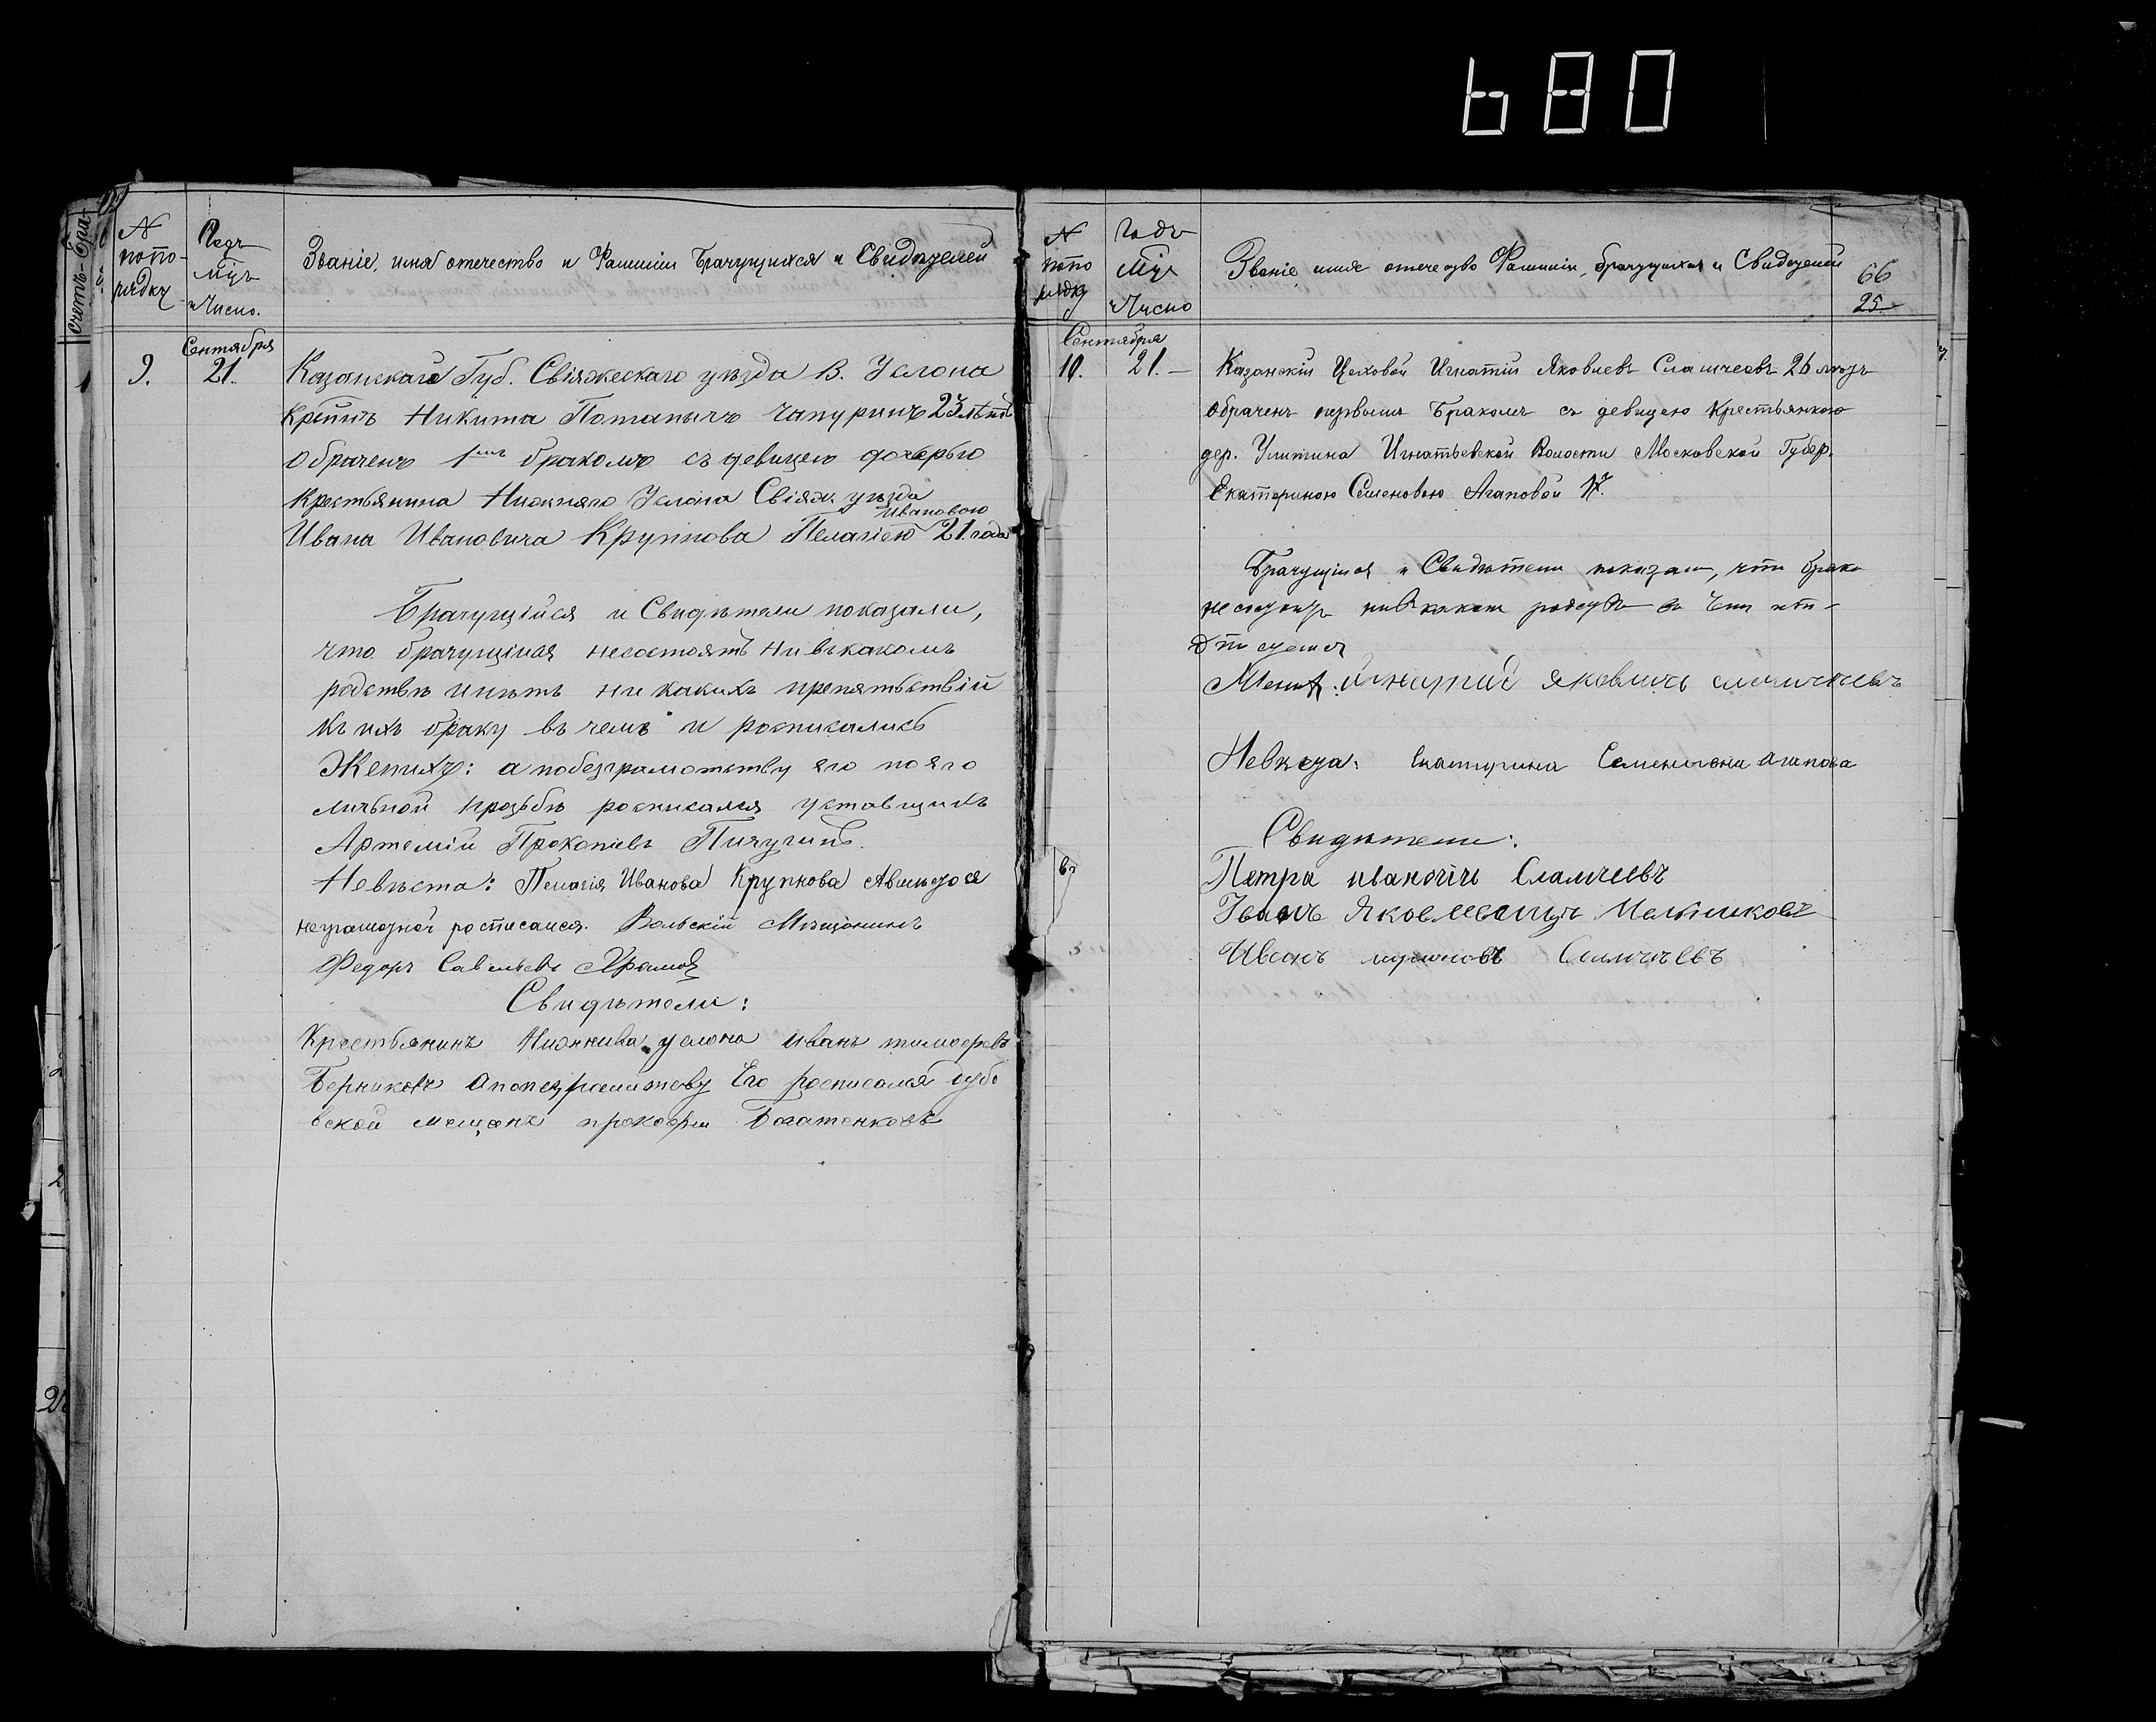 680
счетъ бра-
N
по по-
рядку
Годъ
мцъ
и Число.
Званіе, имя отечество и Фамиліи Брачущихся и Свидѣтелей
Сентября
9.
21.
Казанской Губ. Свіяжескаго уѣзда В. Услона
Кр҃тнъ Никита Потапычъ Чапуринъ 23 лѣтъ
обраченъ 1мъ бракомъ съ девицею дочерью
Крестьянина Нижняго Услона Свіяж. уѣзда
Ивановою
Ивана Ивановича Крупнова Пелагіею 21 года
Брачущійся и Свидѣтели показали,
что брачущіися несостоятъ ни въ какомъ
родствѣ и нѣтъ ни какихъ препятьствій
къ ихъ браку въ чемъ и росписались
Женихъ: а по безграмотству его по его
личьной прозьбѣ росписался уставщикъ
Артемій Прокопіевъ Пичугинъ.
Невѣста: Пелагія Иванова Крупнова
неграмотной росписался. Вольскій Мѣщонинъ
Федоръ Савельевъ Храмов
Свидѣтели:
Крестьянинъ Нижнива услона иванъ тимоѳеевъ
Берниковъ Его росписался дубо
вской мещанъ прокофи Богатенковъ
N
по по
рядку
Годъ
мцъ
и Число
Званіе имя отечество Фамиліи, брачущихся и Свидетелей
66
25
Сентября
10.
21.
Казанскій Цеховой Игнатій Яковлевъ Сламчеевъ 26 лѣтъ
обраченъ первымъ Бракомъ съ девицею Крестьянкою
дер. Улитина Игнатьевской Волости Московской Губер.
Екатериною Семеновою Агаповой 17.
Брачущіися и Свидѣтели показали, что брака
не состоятъ ни въ каком родствѣ въ чем
Женихъ: Игнатий яковличъ
Невѣста: Екатирина агапова
Свидѣтели:
Петра иваночичъ Сламчеевъ
Іванъ Мельниковъ
Иванъ